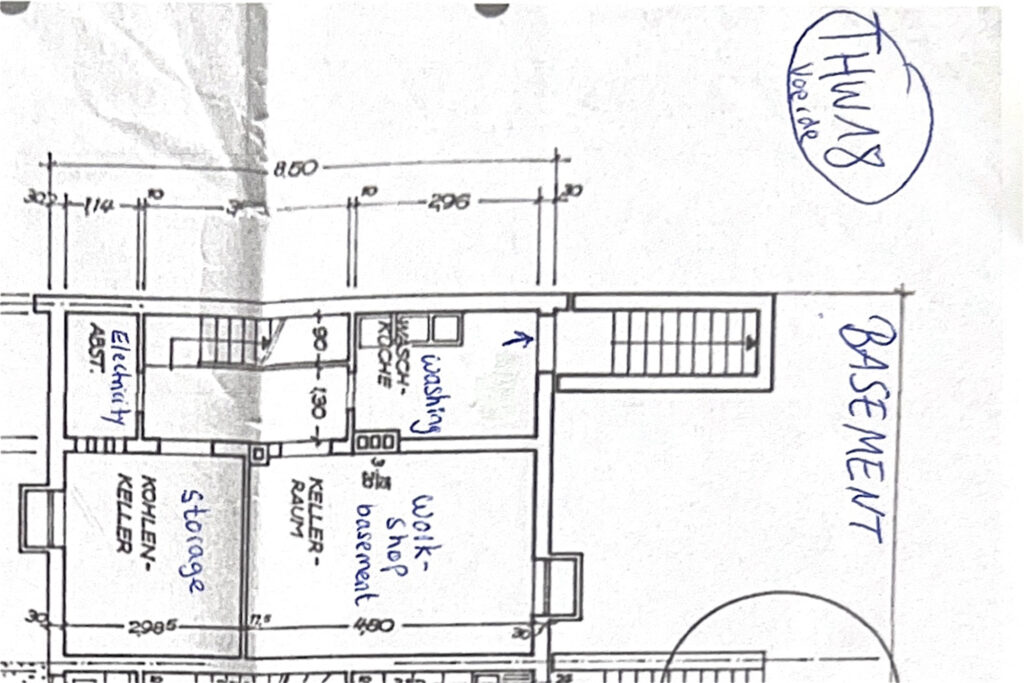 THW18
Voerde
BASEMENT
8,50
30
1,14
10
10
2,96
30
Electricity
ABST.
90
1,30
WASCH-
KÜCHE
washing
KOHLEN-
KELLER
storage
KELLER-
RAUM
work-
shop
basement
30
2,985
17,5
4,80
30